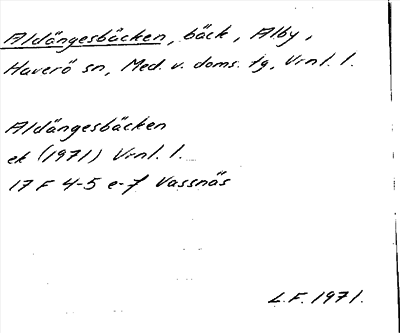 Aldängesbäcken, bäck, Alby,
Haverö sn, Med. v. doms. tg, Vrnl. l.
Aldängesbäcken
ek (1971) Vrnl. l.
17 F 4-5 e-f Vassnäs
L.F. 1971.